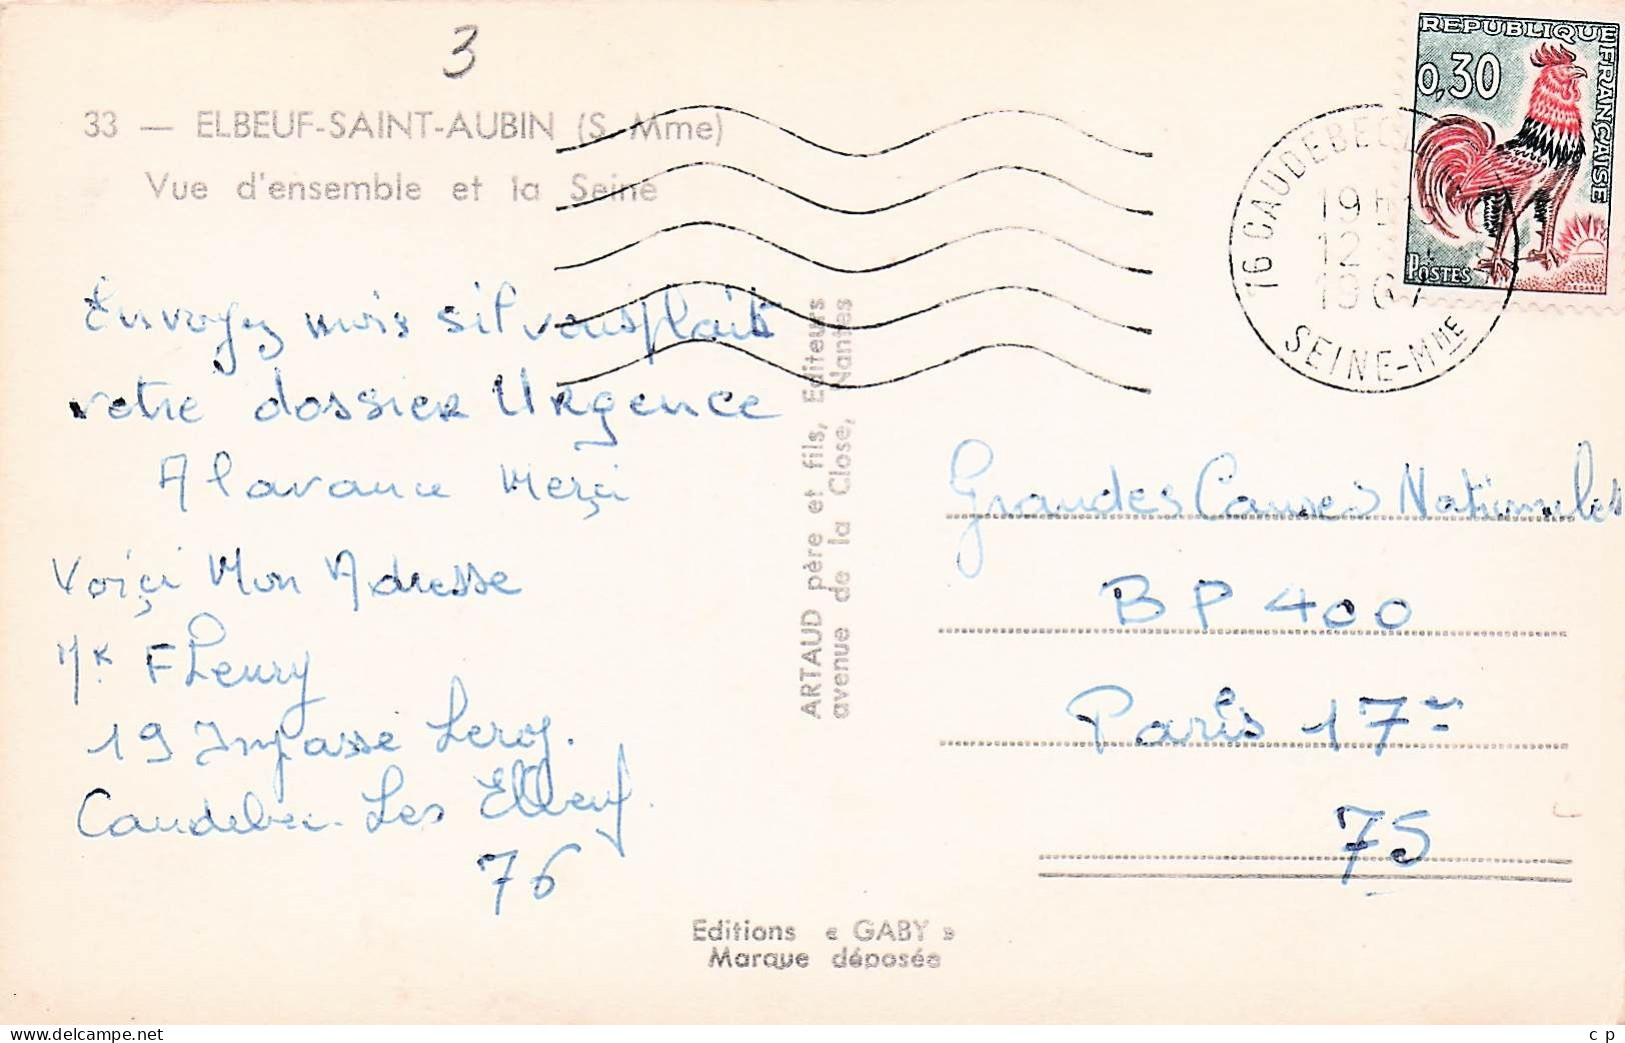 3
33 — ELBEUF-SAINT-AUBIN (S.-Mme)
Vue d'ensemble et la Seine
REPUBLIQUE FRANÇAISE
0,30
POSTES
76 CAUDEBEC
19 H
12
196
SEINE-Mme
Envoyez mois sil vousplait
votre dossier Urgence
A lavance Merçi
Voiçi Mon Adresse
Mr Fleury
19 Impasse Leroy.
Caudebec-Les Elbeuf.
76
ARTAUD père et fils, Editeurs
avenue de la Close, Nantes
Grandes Causes Nationales
BP 400
Paris 17
75
Editions « GABY »
Marque déposée
c p